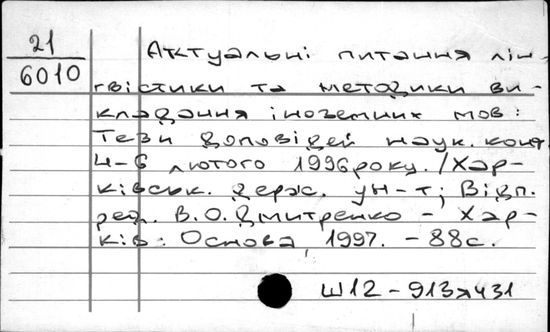 21
6010
Актуальні питання лін-
гвістики та методики ви-
кладання іноземних мов:
Тези доповідей наук. конф.
4-6 лютого 1996 року. / Хар-
ківськ. держ. ун-т; Відп.
ред. В.О. Дмитренко - Хар-
ків: Основа, 1997. - 88 с.
Ш12-913я431